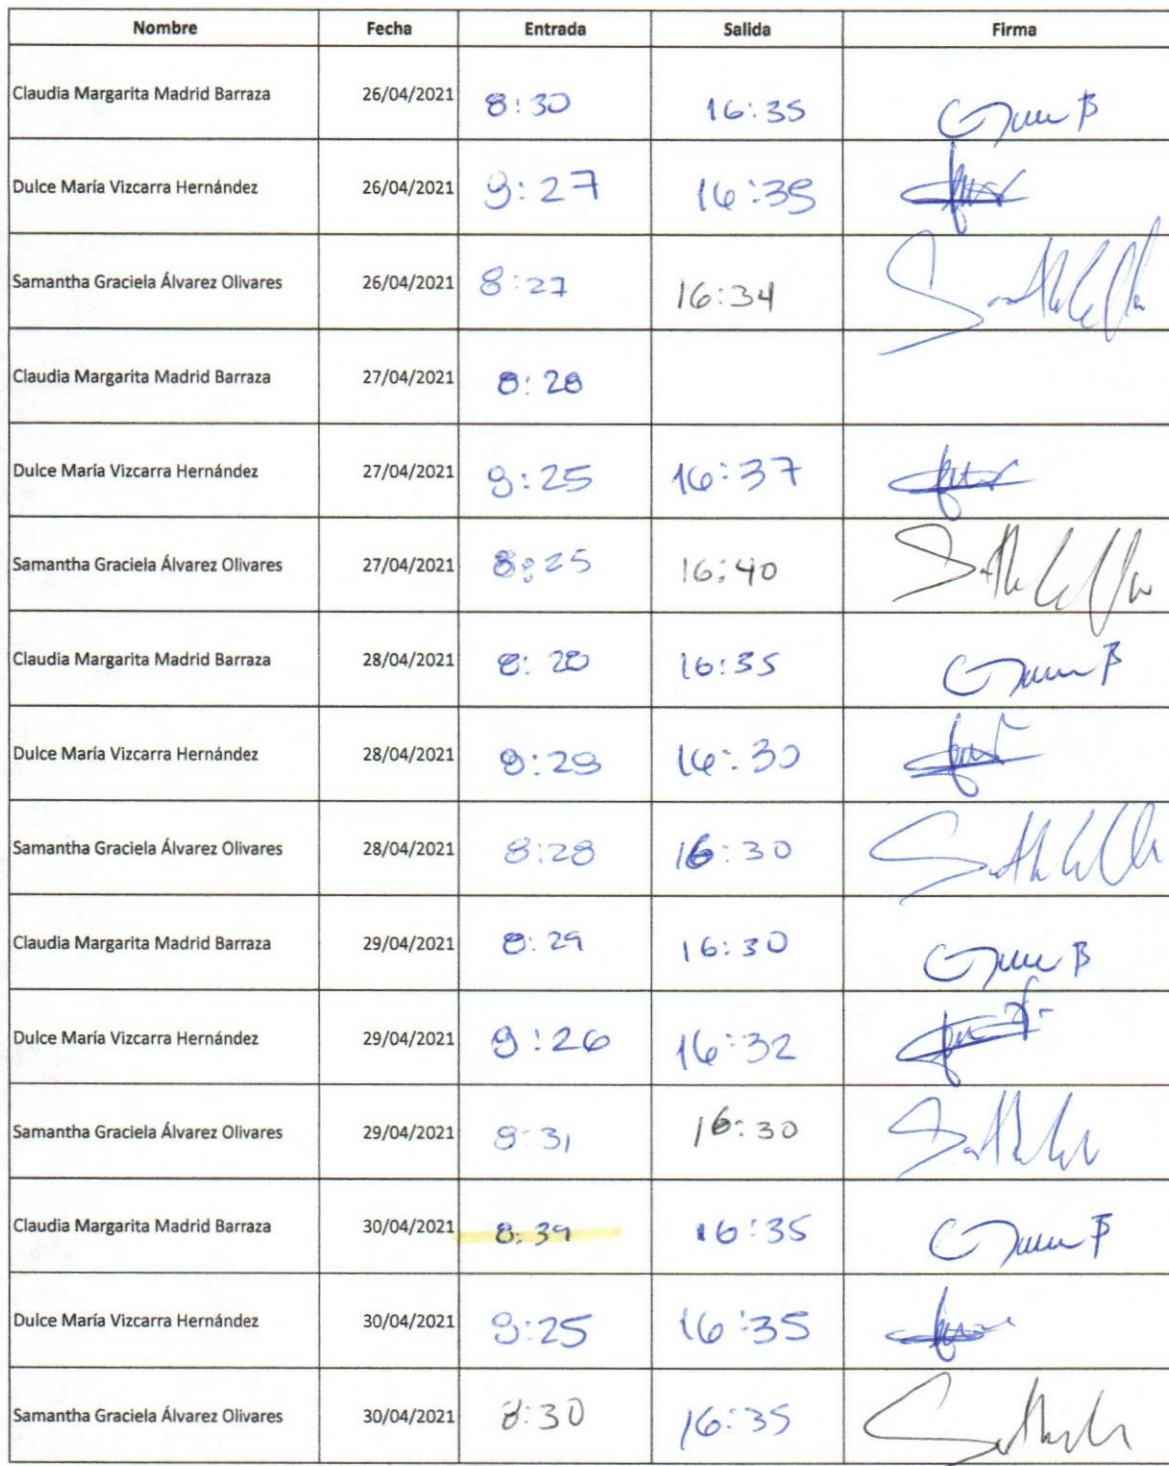 Nombre Fecha Entrada Salida Firma
Claudia Margarita Madrid Barraza 26/04/2021 8:30 16:35
Dulce María Vizcarra Hernández 26/04/2021 8:27 16:35
Samantha Graciela Álvarez Olivares 26/04/2021 8:27 16:34
Claudia Margarita Madrid Barraza 27/04/2021 8:28
Dulce María Vizcarra Hernández 27/04/2021 8:25 16:37
Samantha Graciela Álvarez Olivares 27/04/2021 8:25 16:40
Claudia Margarita Madrid Barraza 28/04/2021 16:35
Dulce María Vizcarra Hernández 28/04/2021 16:30
Samantha Graciela Álvarez Olivares 28/04/2021 8:28 16:30
Claudia Margarita Madrid Barraza 29/04/2021 8:29 16:30
Dulce María Vizcarra Hernández 29/04/2021 8:26 16:32
Samantha Graciela Álvarez Olivares 29/04/2021 8:31 16:30
Claudia Margarita Madrid Barraza 30/04/2021 8:39 16:35
Dulce María Vizcarra Hernández 30/04/2021 8:25 16:35
Samantha Graciela Álvarez Olivares 30/04/2021 8:30 16:35